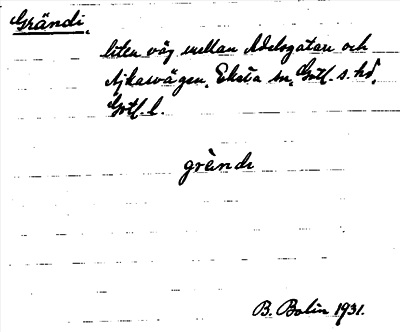 Grändi.
liten väg mellan Adelsgatan och
Ajkesvägen. Eksta sn, Gotl. s. hd,
Gotl. l.
grèndi
B. Bolin 1931.